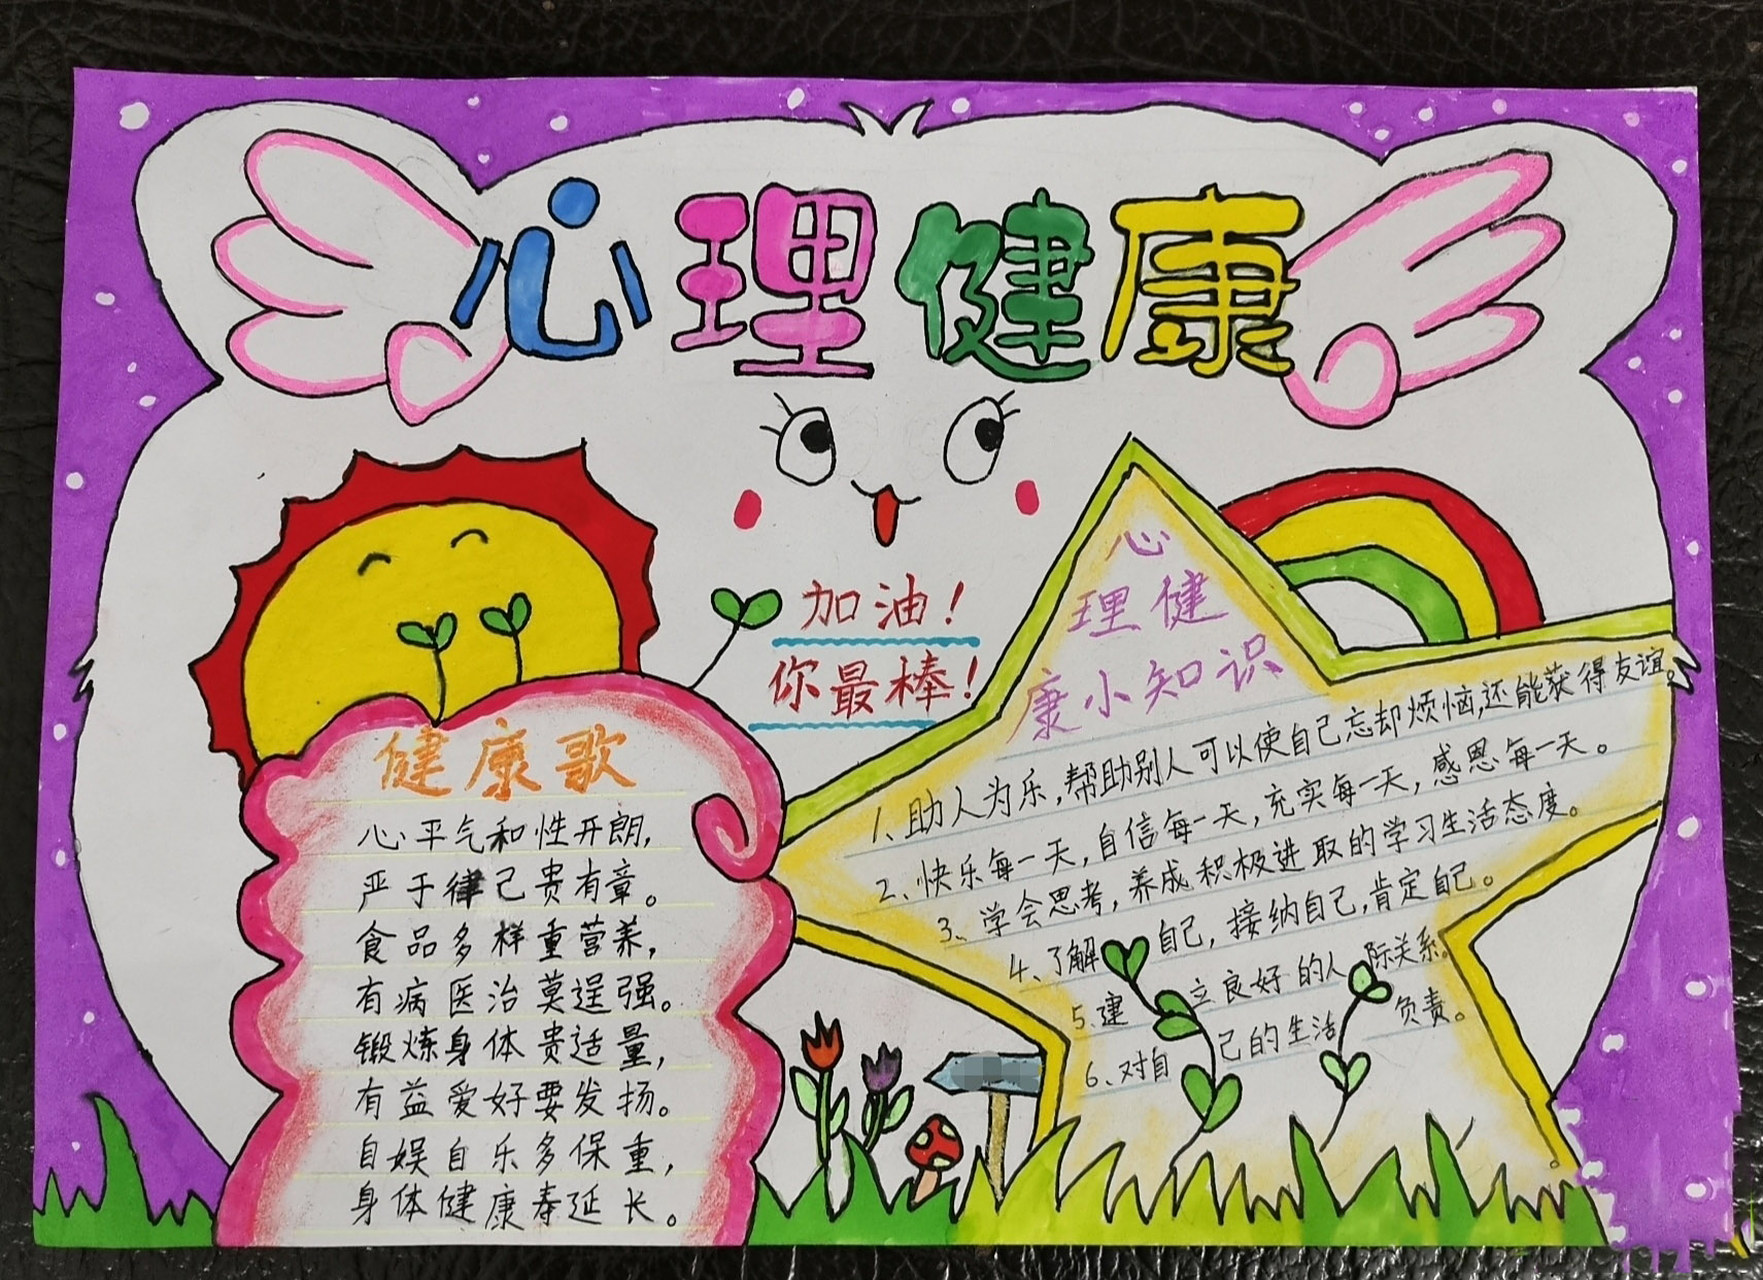 心理健康
加油！
你最棒！
健康歌
心平气和性开朗，
严于律己贵有章。
食品多样重营养，
有病医治莫逞强。
锻炼身体贵适量，
有益爱好要发扬。
自娱自乐多保重，
身体健康寿延长。
心
理健
康小知识
1、助人为乐，帮助别人可以使自己忘却烦恼，还能获得友谊。
2、快乐每一天，自信每一天，充实每一天，感恩每一天。
3、学会思考，养成积极进取的学习生活态度。
4、了解自己，接纳自己，肯定自己。
5、建立良好的人际关系。
6、对自己的生活负责。